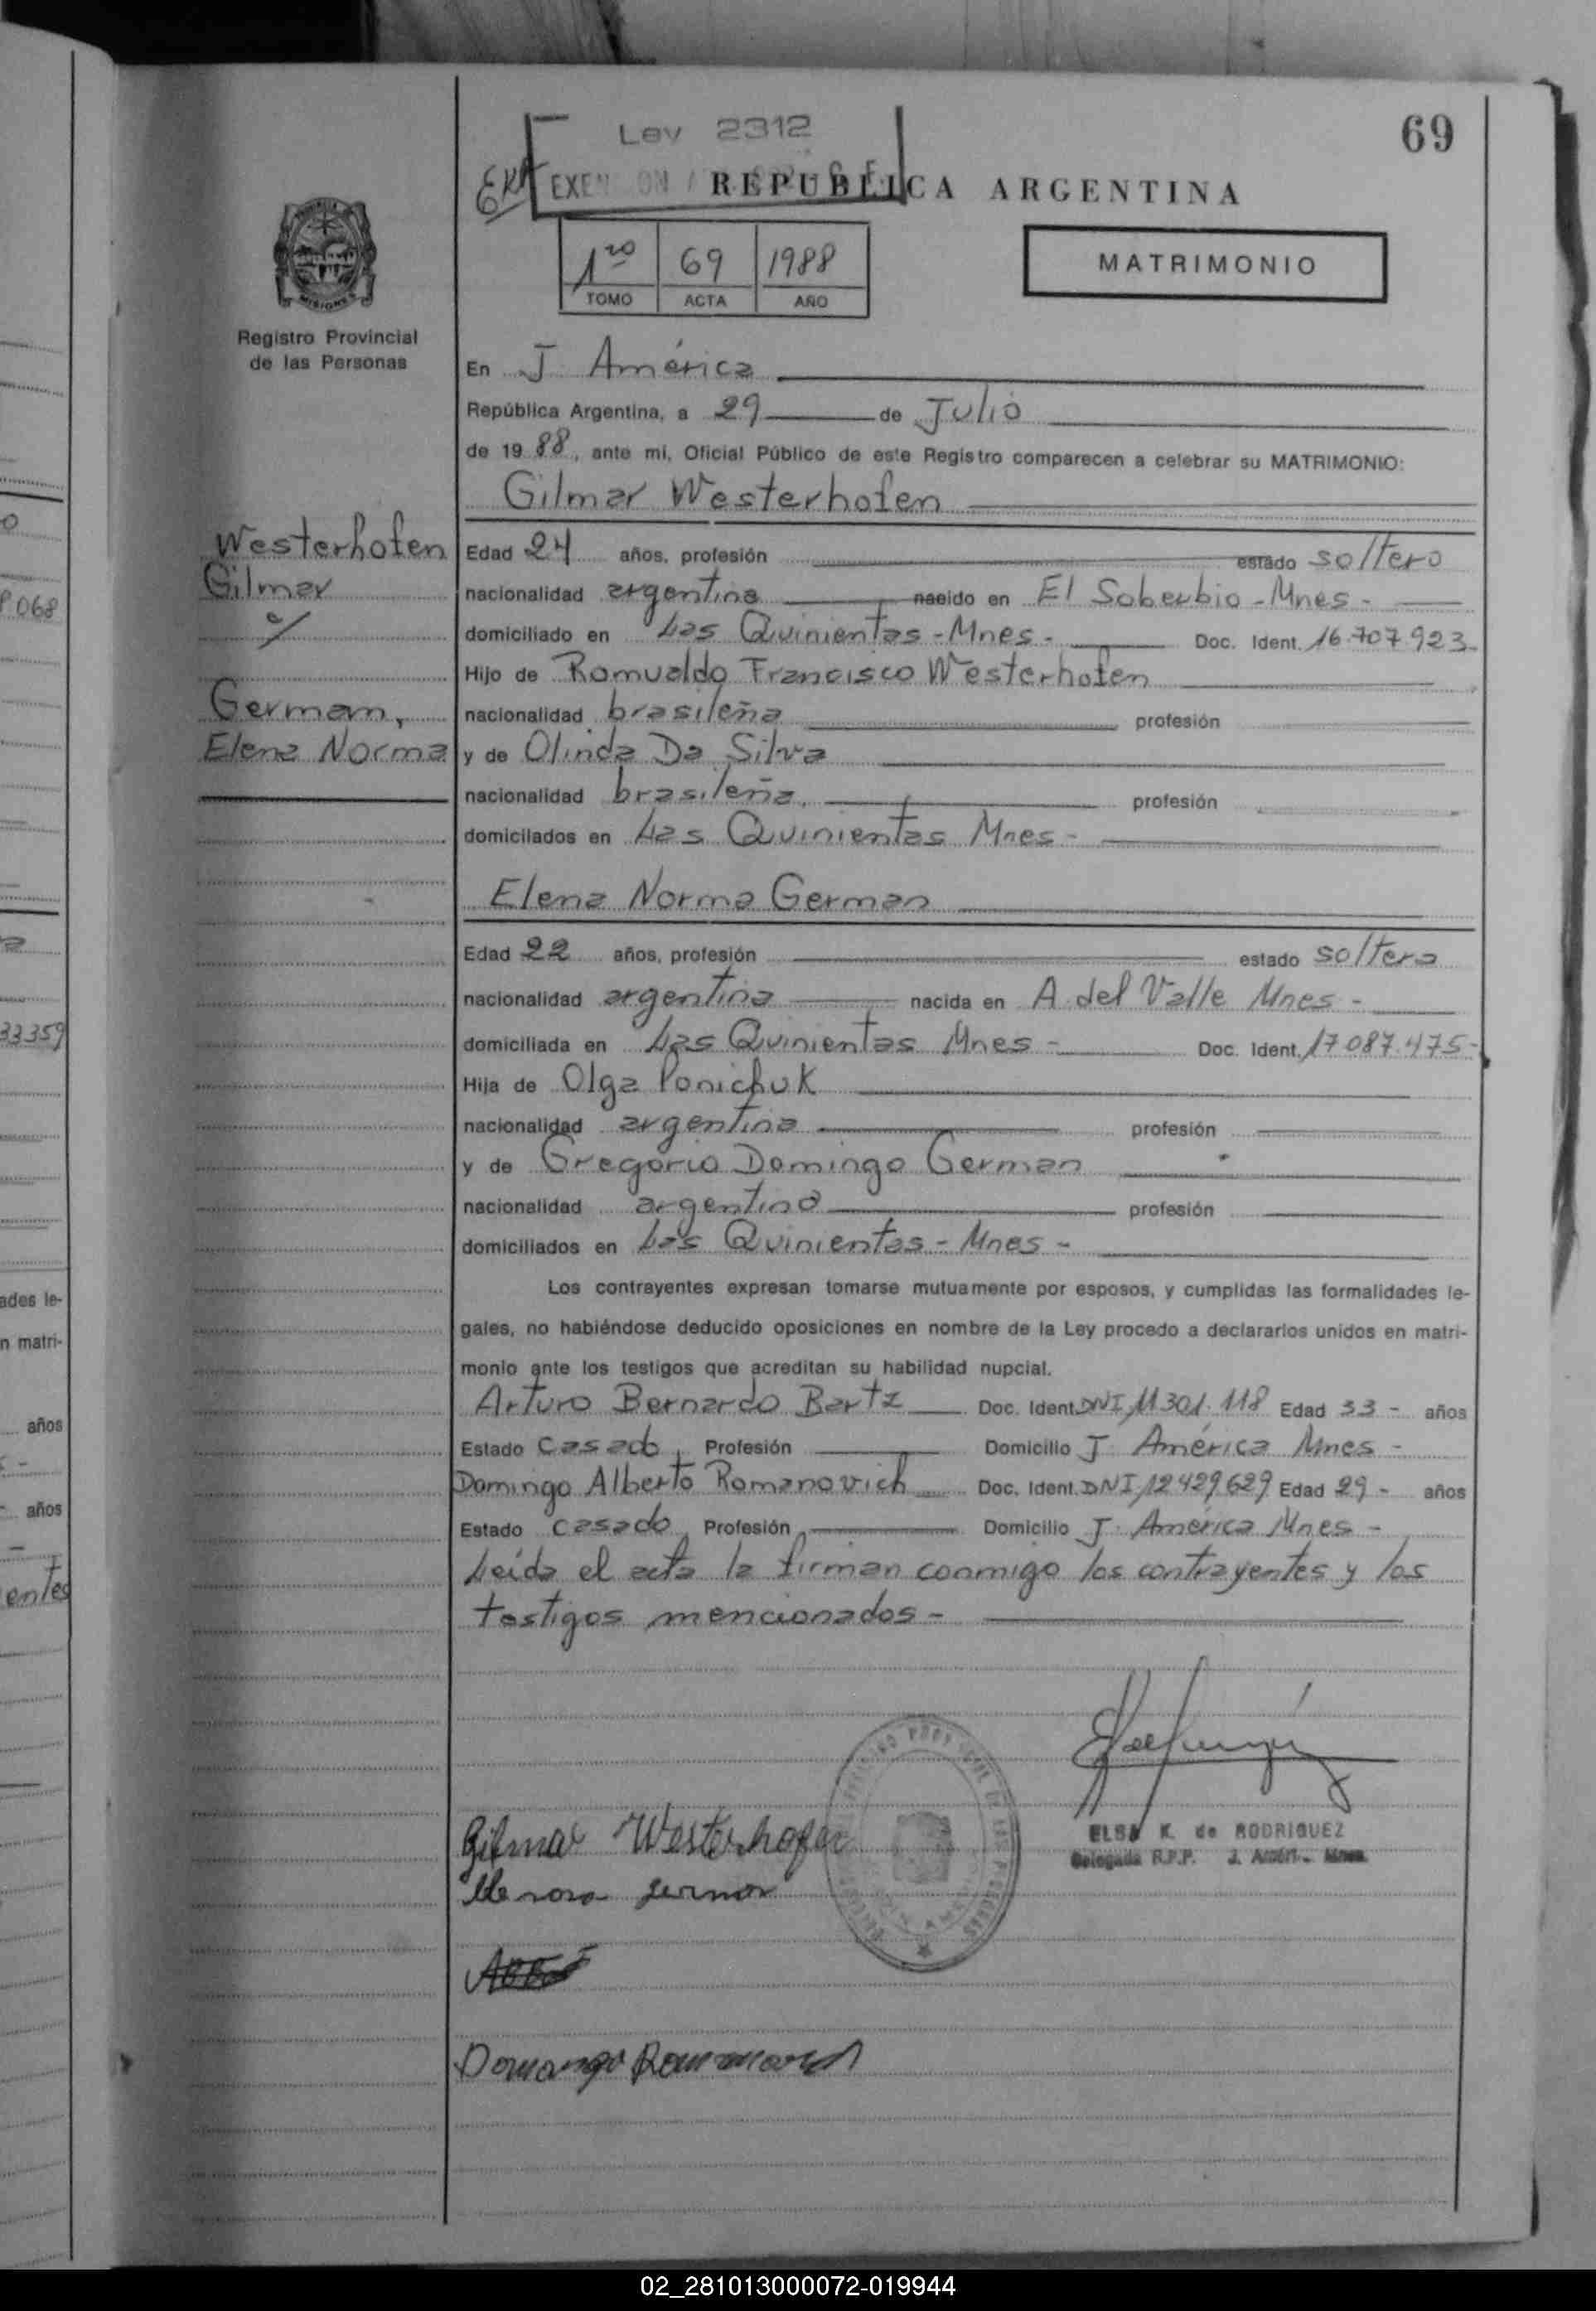 69
Ley 2312
EXENCION
REPUBLICA ARGENTINA
1ro 69 1988
TOMO ACTA AÑO
MATRIMONIO
MISIONES
Registro Provincial
de las Personas
En J. América
República Argentina, a 29 de Julio
de 19 88, ante mi, Oficial Público de este Registro comparecen a celebrar su MATRIMONIO:
Gilmar Westerhofen
Westerhofen
Gilmar
c/
German,
Elena Norma
Edad 24 años, profesión estado soltero
nacionalidad argentina nacido en El Soberbio - Mnes -
domiciliado en Las Quinientas - Mnes - Doc. Ident. 16.707.923-
Hijo de Romualdo Francisco Westerhofen
nacionalidad brasileña profesión
y de Olinda Da Silva
nacionalidad brasileña. profesión
domiciliados en Las Quinientas Mnes -
Elena Norma German
Edad 22 años, profesión estado soltera
nacionalidad argentina nacida en A. del Valle Mnes -
domiciliada en Las Quinientas Mnes - Doc. Ident. 17.087.475-
Hija de Olga Ponichuk
nacionalidad argentina profesión
y de Gregorio Domingo German
nacionalidad argentina profesión
domiciliados en Las Quinientas - Mnes -
Los contrayentes expresan tomarse mutuamente por esposos, y cumplidas las formalidades le-
gales, no habiéndose deducido oposiciones en nombre de la Ley procedo a declararlos unidos en matri-
monio ante los testigos que acreditan su habilidad nupcial.
Arturo Bernardo Bartz Doc. Ident. DNI 11.301.118 Edad 33 - años
Estado casado Profesión Domicilio J. América Mnes -
Domingo Alberto Romanovich Doc. Ident. DNI 12.429.629 Edad 29 - años
Estado casado Profesión Domicilio J. América Mnes -
Leída el acta la firman conmigo los contrayentes y los
testigos mencionados -
ELSA K. de RODRIGUEZ
Delegada R.P.P. J. Améri. Mnes.
Gilmar Westerhofen
German
Domingo Romanovich
068
33359
ades le-
n matri-
años
años
entes
02_281013000072-019944